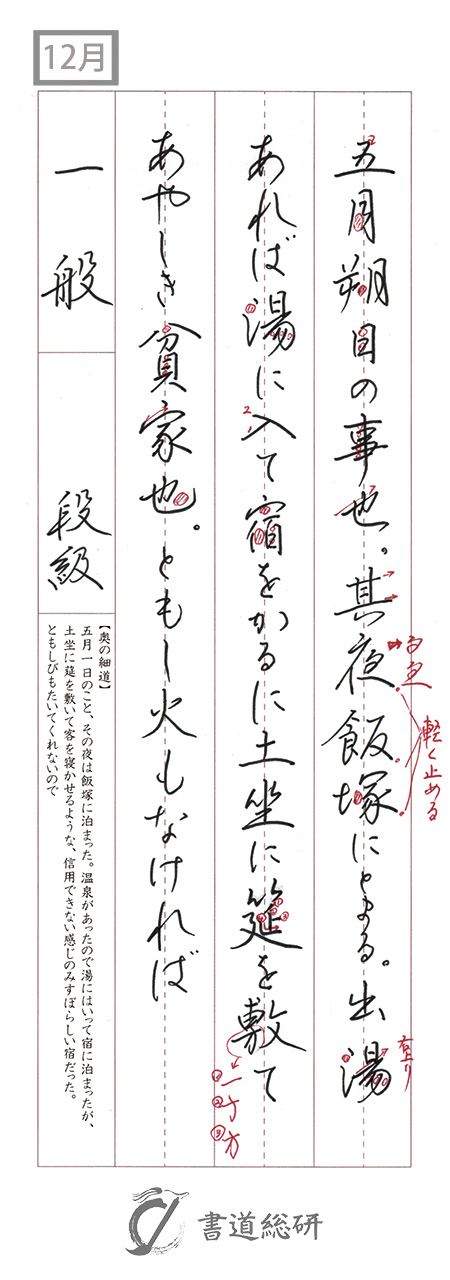 12月
五月朔日の事也。其夜飯塚にとまる。出湯
あれば湯に入て宿をかるに土坐に筵を敷て
あやしき貧家也。ともし火もなければ
一般
段級
【奥の細道】
五月一日のこと、その夜は飯塚に泊まった。温泉があったので湯にはいって宿に泊まったが、
土坐に筵を敷いて客を寝かせるような、信用できない感じのみすぼらしい宿だった。
ともしびもたいてくれないので
軽く止める
右上り
書道総研